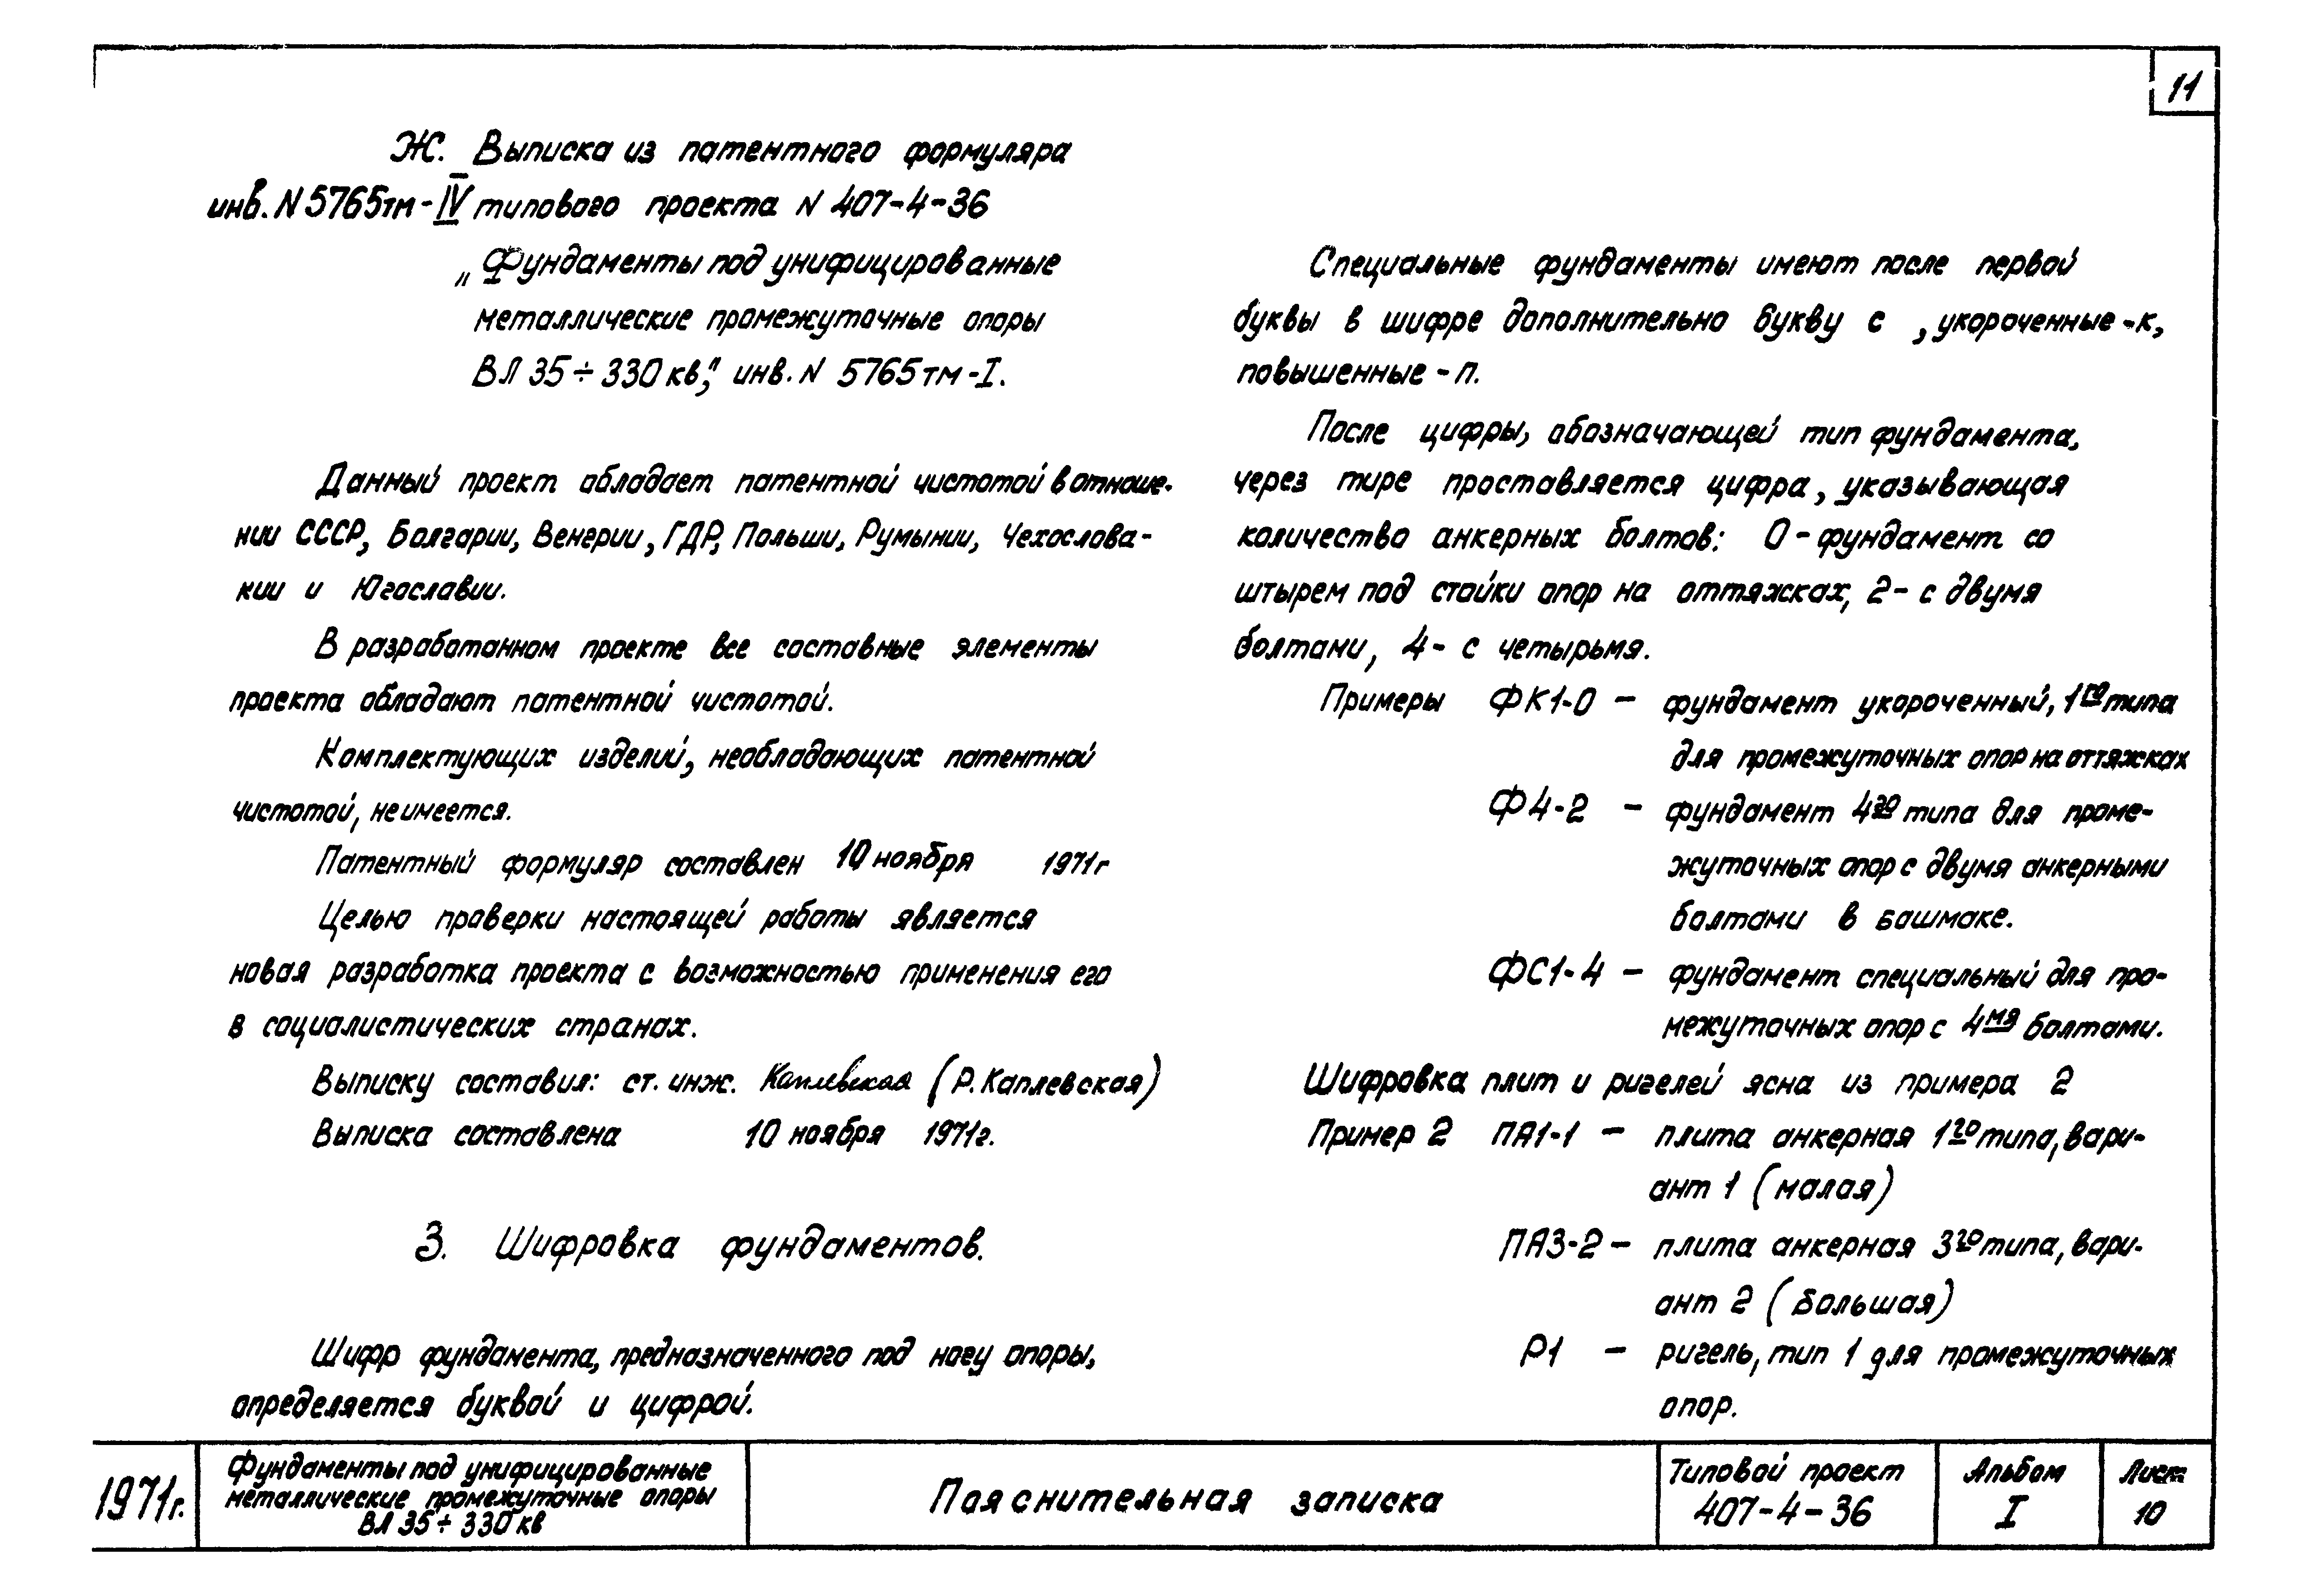 11
Ж. Выписка из патентного формуляра
инв. N 5765тм-IV типового проекта N 407-4-36
„Фундаменты под унифицированные
металлические промежуточные опоры
ВЛ 35÷330 кв", инв. N 5765тм-I.
Данный проект обладает патентной чистотой в отноше-
нии СССР, Болгарии, Венгрии, ГДР, Польши, Румынии, Чехослова-
кии и Югославии.
В разработанном проекте все составные элементы
проекта обладают патентной чистотой.
Комплектующих изделий, необладающих патентной
чистотой, не имеется.
Патентный формуляр составлен 10 ноября 1971г
Целью проверки настоящей работы является
новая разработка проекта с возможностью применения его
в социалистических странах.
Выписку составил: ст. инж. Каплевская (Р. Каплевская)
Выписка составлена 10 ноября 1971г.
З. Шифровка фундаментов.
Шифр фундамента, предназначенного под ногу опоры,
определяется буквой и цифрой.
Специальные фундаменты имеют после первой
буквы в шифре дополнительно букву с , укороченные -к,
повышенные - п.
После цифры, обозначающей тип фундамента,
через тире проставляется цифра, указывающая
количество анкерных болтов: 0 - фундамент со
штырем под стойки опор на оттяжках, 2 - с двумя
болтами, 4 - с четырьмя.
Примеры ФК1-0 — фундамент укороченный, 1го типа
для промежуточных опор на оттяжках
Ф4-2 — фундамент 4го типа для проме-
жуточных опор с двумя анкерными
болтами в башмаке.
ФС1-4 — фундамент специальный для про-
межуточных опор с 4мя болтами.
Шифровка плит и ригелей ясна из примера 2
Пример 2 ПА1-1 — плита анкерная 1го типа, вари-
ант 1 (малая)
ПА3-2 — плита анкерная 3го типа, вари-
ант 2 (большая)
Р1 — ригель, тип 1 для промежуточных
опор.
1971г.
Фундаменты под унифицированные
металлические промежуточные опоры
ВЛ 35÷330 кв
Пояснительная записка
Типовой проект
407-4-36
Альбом
I
Лист
10